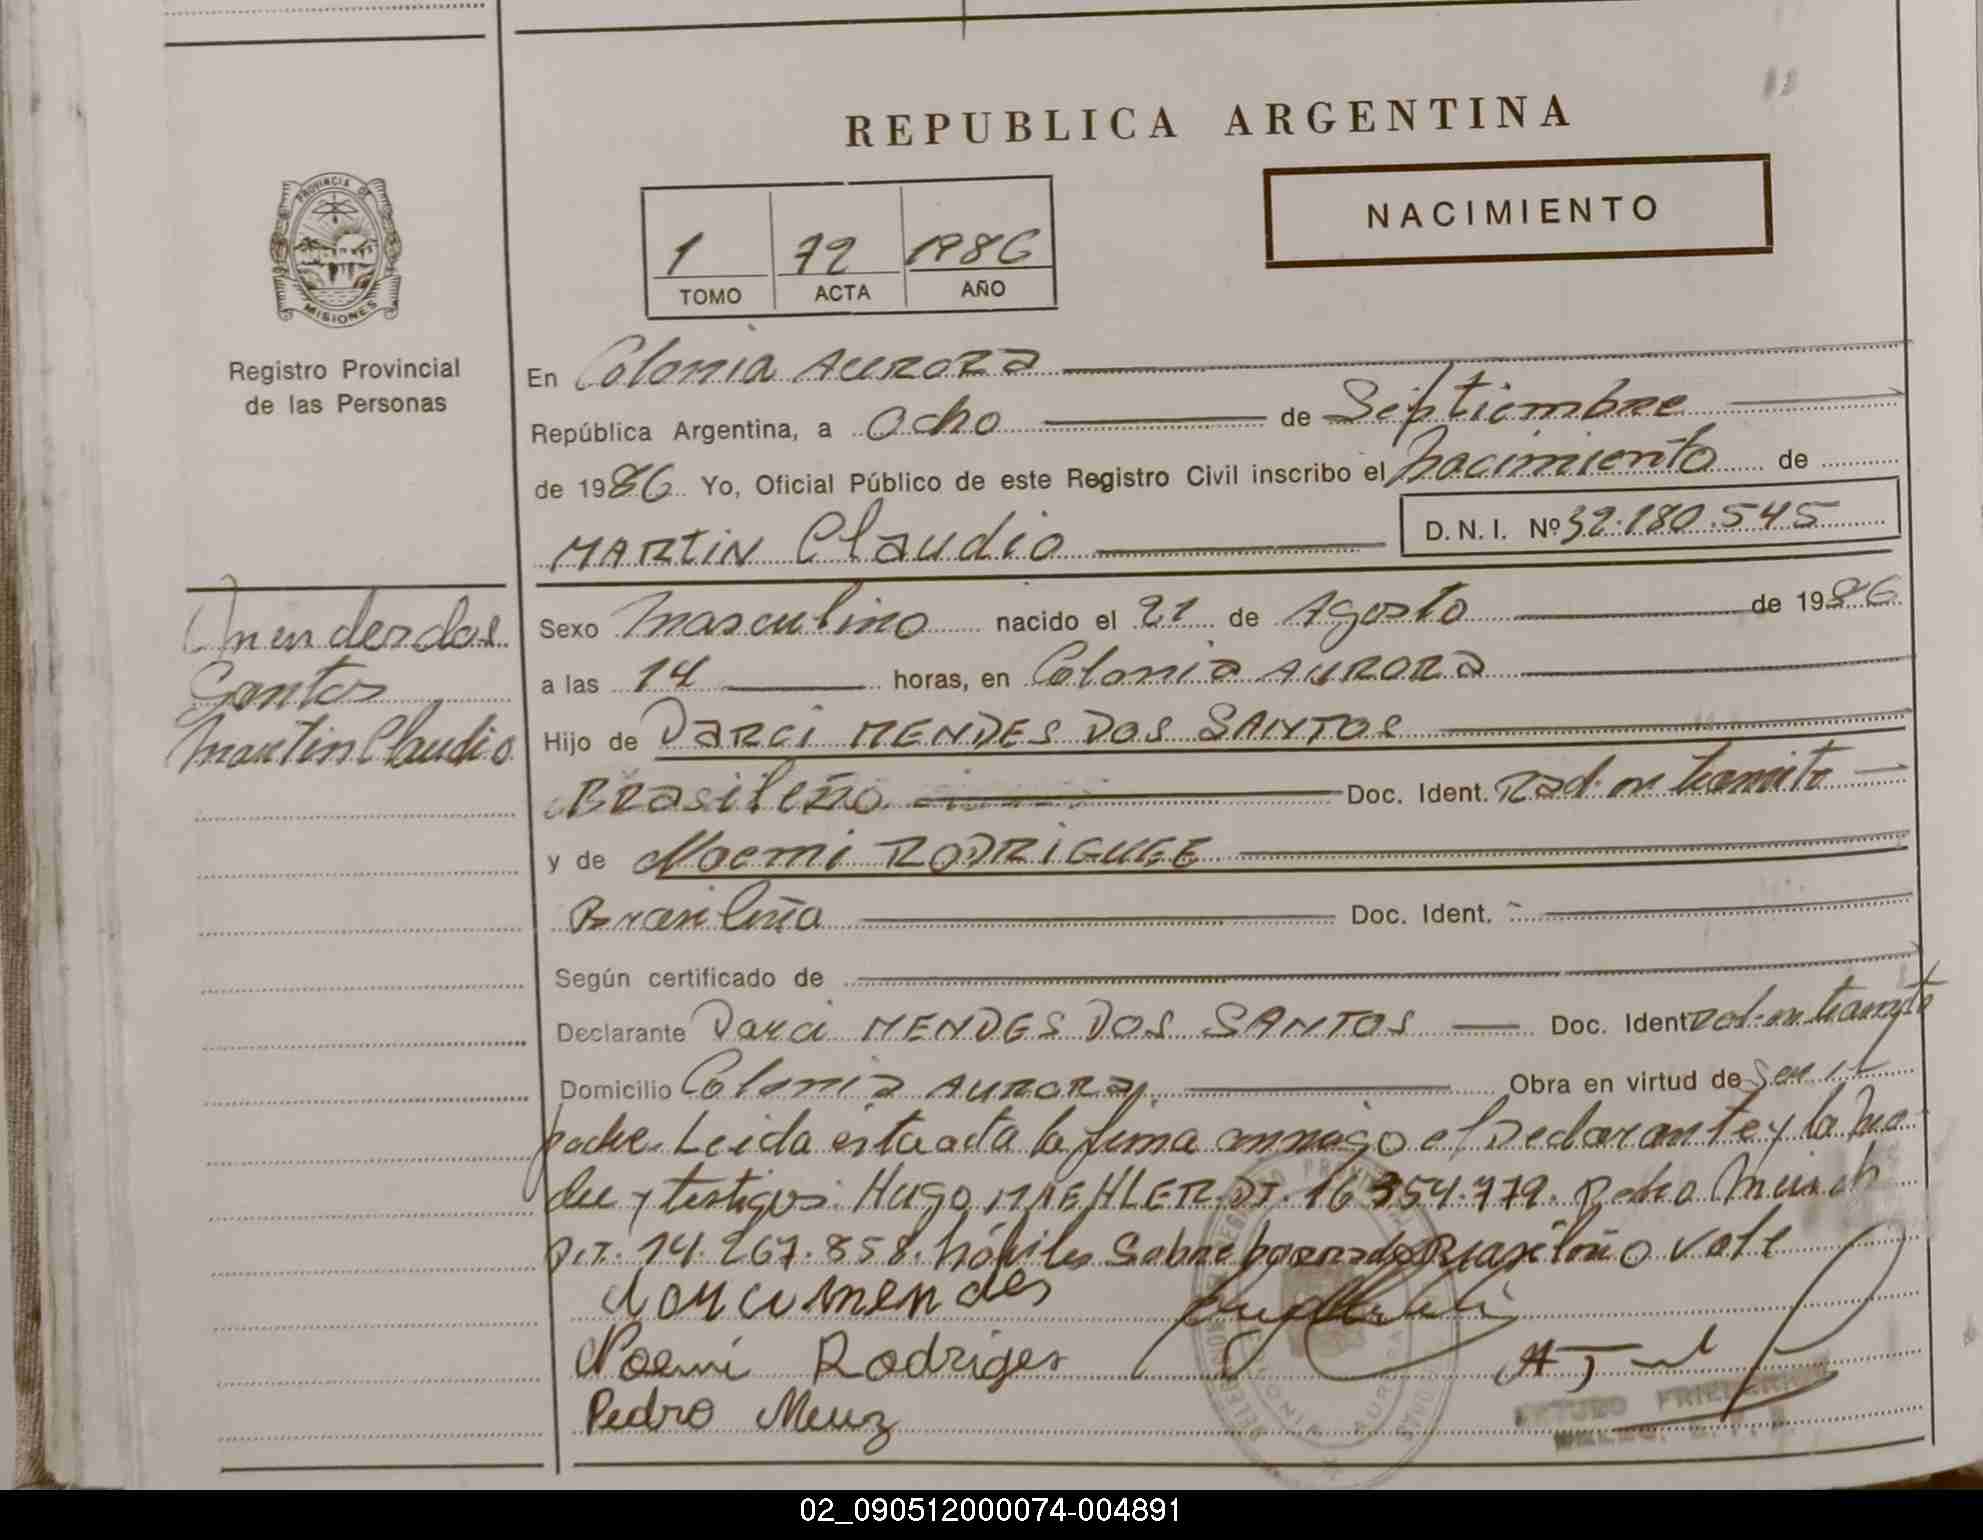 REPUBLICA ARGENTINA
NACIMIENTO
PROVINCIA DE
MISIONES
Registro Provincial
de las Personas
1 72 1986
TOMO ACTA AÑO
En Colonia AURORA
República Argentina, a Ocho de Septiembre
de 1986 Yo, Oficial Público de este Registro Civil inscribo el nacimiento de
MARTIN Claudio D.N.I. Nº 32.180.545
Santos
Martin Claudio
Sexo Masculino nacido el 21 de Agosto de 1986
a las 14 horas, en Colonia AURORA
Hijo de Darci MENDES DOS SANTOS
Brasileño Doc. Ident. Rad. en tramite
y de Noemi RODRIGUEE
Brasileña Doc. Ident.
Según certificado de
Declarante Darci MENDES DOS SANTOS Doc. Ident Rad. en tramite
Domicilio Colonia AURORA. Obra en virtud de Ser el
padre. Leida esta acta la firma conmigo el Declarante y la ma
dre y testigos: Hugo MAEHLER DI. 16.354.779. Pedro
D.I. 14.267.858. hábiles Sobre borrado Brasileño Vale
mendes
Noemi Rodriges
Pedro
COLONIA AURORA
ARTURO
02_090512000074-004891